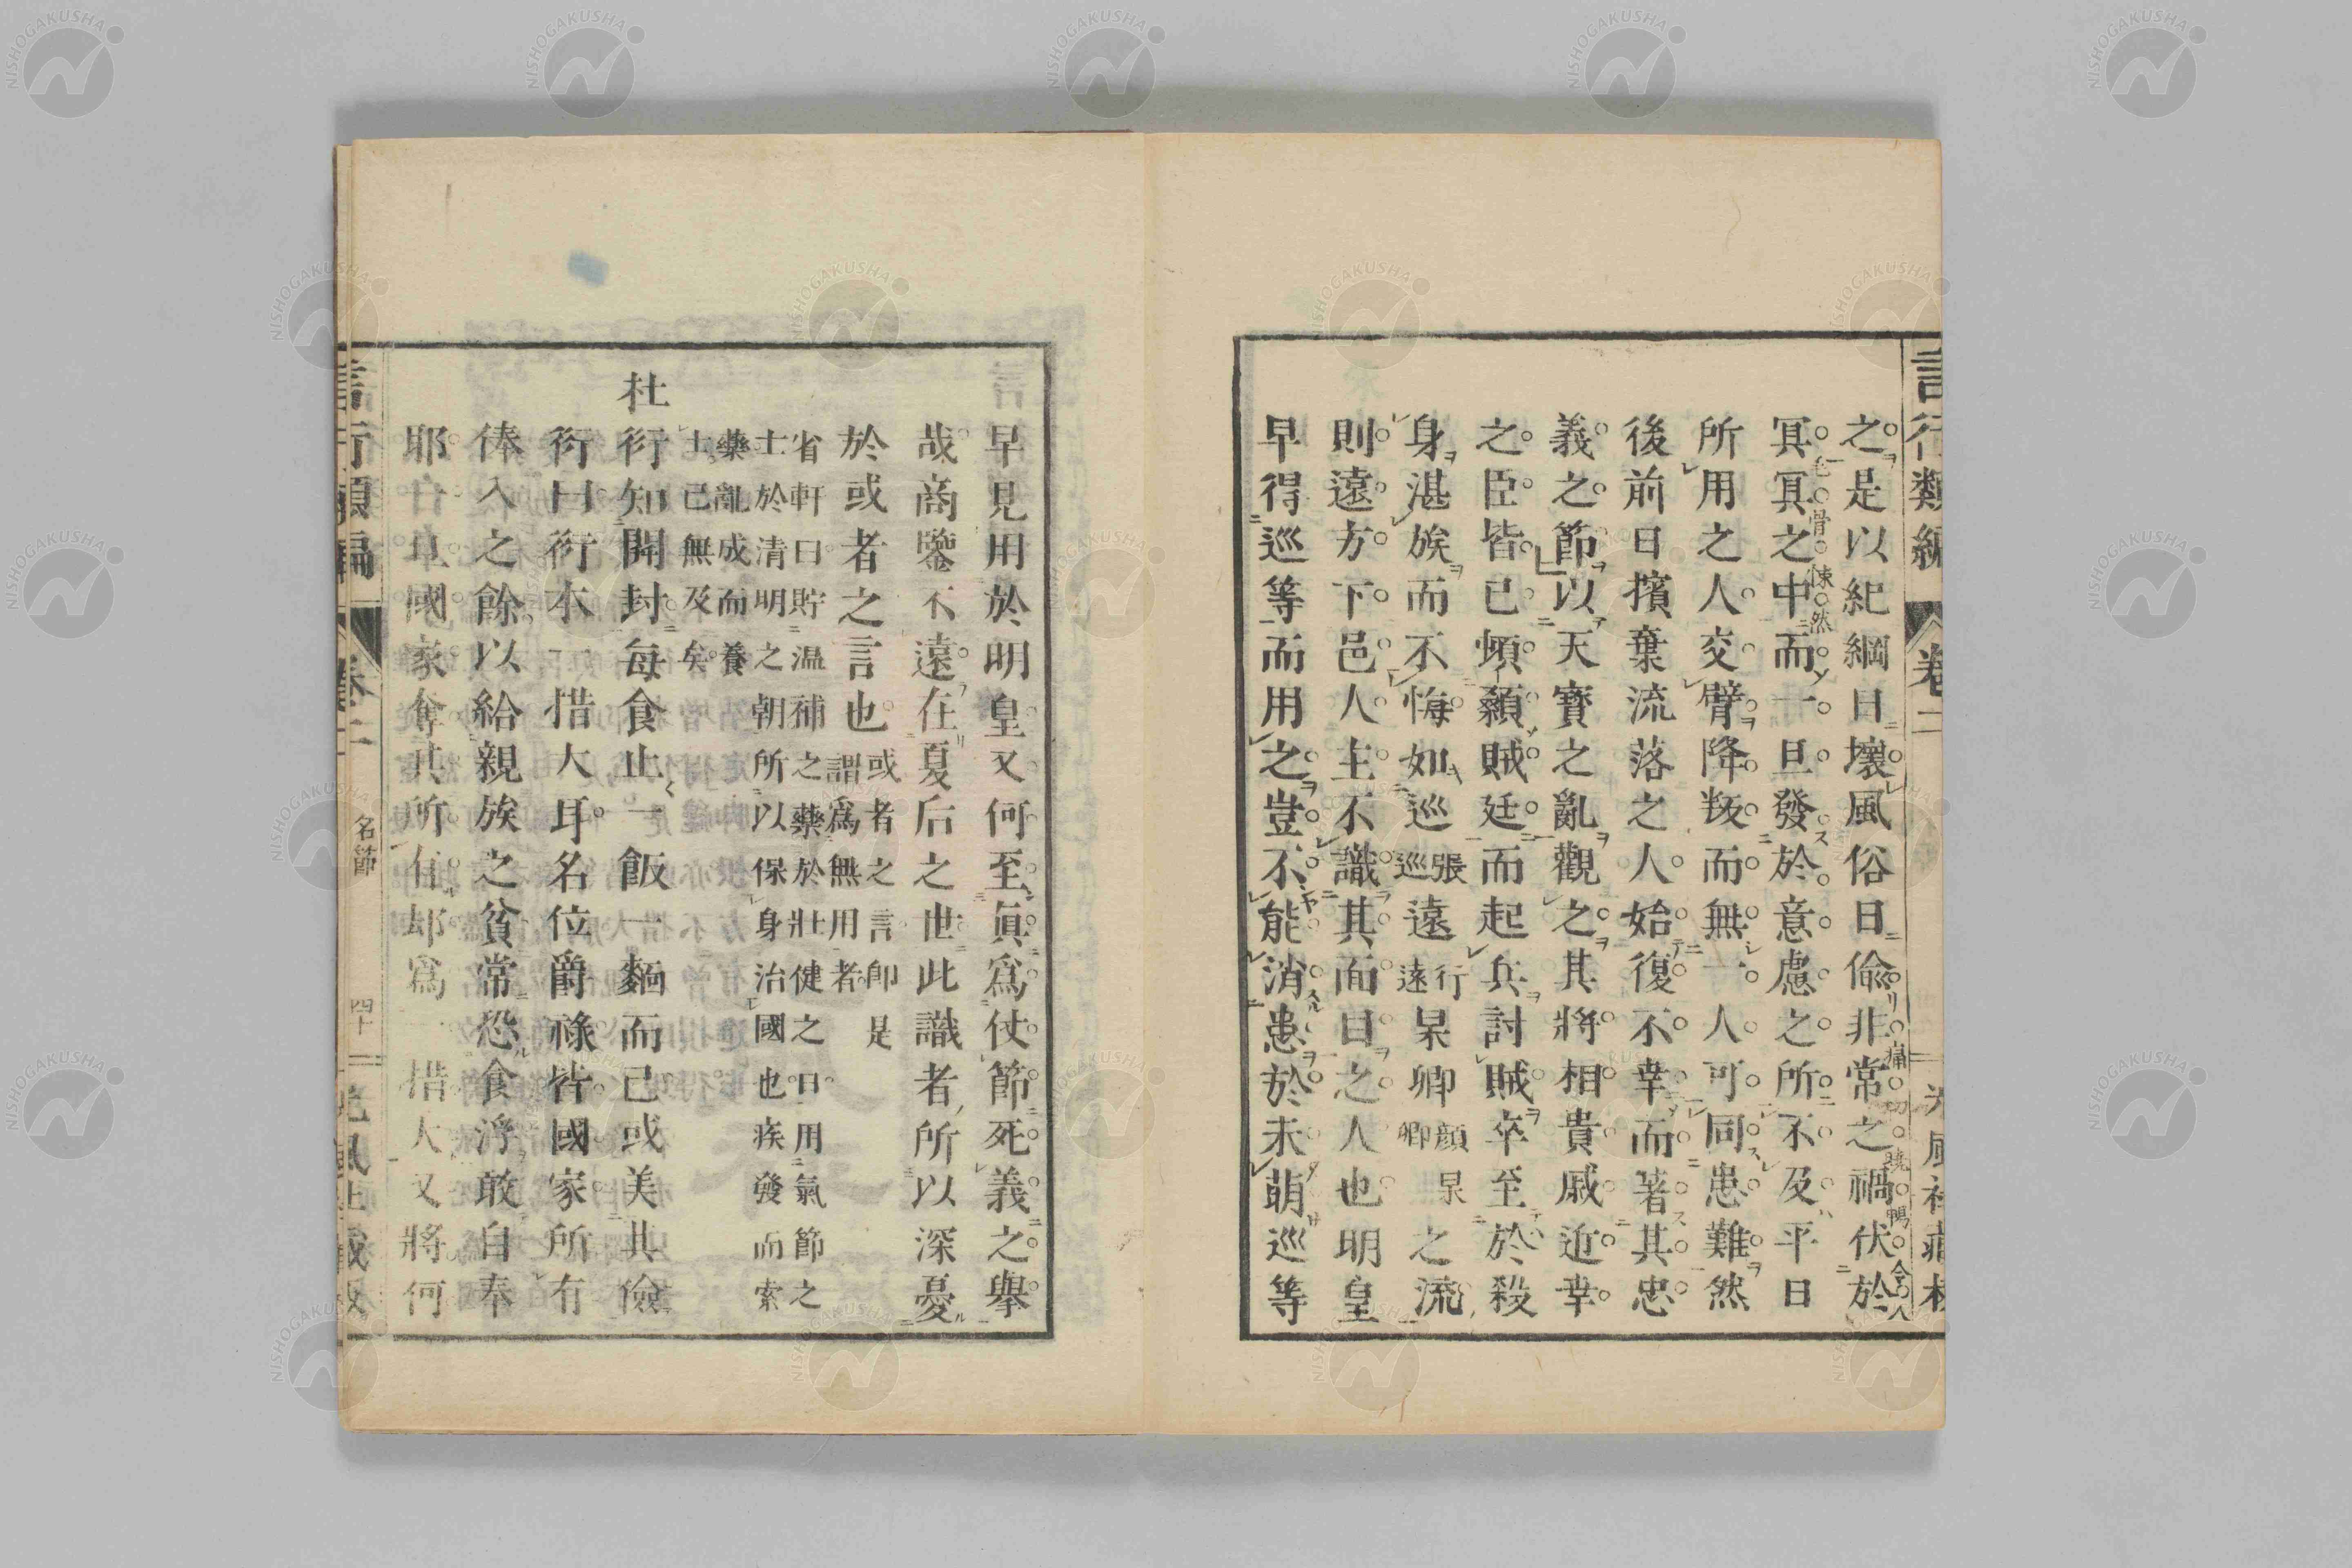 之是以紀綱日壞風俗日偸非常之禍伏於
冥冥之中而一旦發於意慮之所不及平日
所用之人交臂降叛而無一人可同患難然
後前日擯棄流落之人始復不幸而著其忠
義之節以天寶之亂觀之其將相貴戚近幸
之臣皆已頓顙賊廷而起兵討賊卒至於殺
身湛族而不悔如巡張巡遠行遠杲卿顔杲卿之流
則遠方下邑人主不識其面目之人也明皇
早得巡等而用之豈不能消患於未萌巡等
言行類編 卷二
早見用於明皇又何至眞爲仗節死義之擧
哉商鑒不遠在夏后之世此識者所以深憂
於或者之言也或者之言卽是謂爲無用者
省軒曰貯温補之藥於壯健之日用氣節之
士於淸明之朝所以保身治國也疾發而索
藥亂成而養
士已無及矣
杜衍知開封每食止一飯一麵而已或美其儉
衍曰衍本一措大耳名位爵祿皆國家所有
俸入之餘以給親族之貧常恐食浮敢自奉
耶一旦國家奪其所有却爲一措大又將何
言行類編 卷二 名節 四十
NISHOGAKUSHA